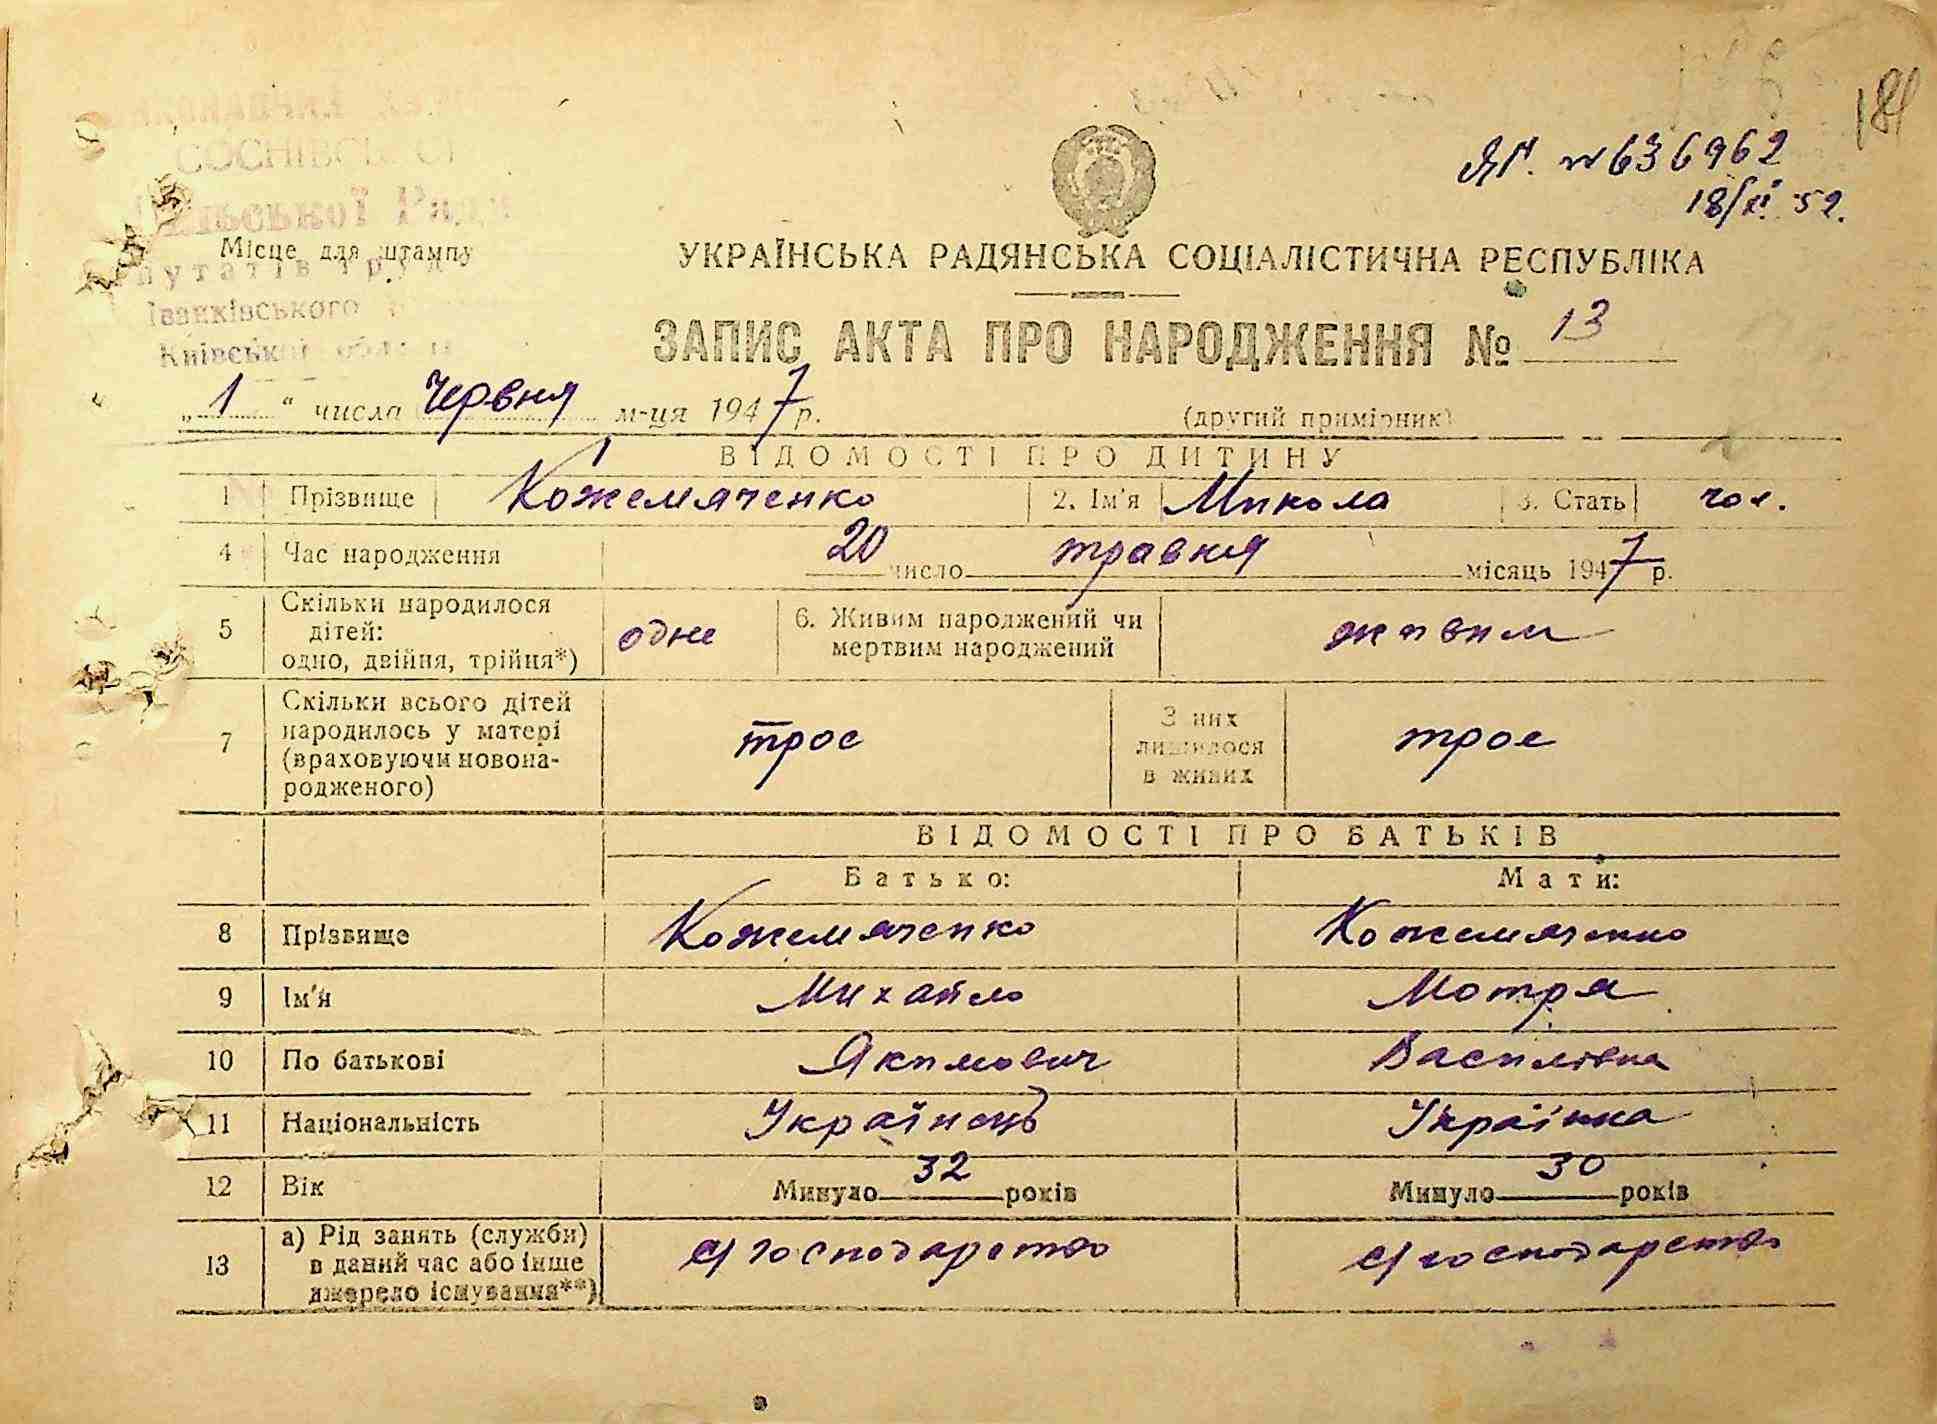 181
ЯГ. № 636962
18/XI 52.
СОСНІВСЬКОЇ
сільської Ради
Місце для штампу
Іванківського
Київської
УКРАЇНСЬКА РАДЯНСЬКА СОЦІАЛІСТИЧНА РЕСПУБЛІКА
ЗАПИС АКТА ПРО НАРОДЖЕННЯ № 13
„1“ числа Червня м-ця 1947 р. (другий примірник)
ВІДОМОСТІ ПРО ДИТИНУ
1 Прізвище Кожемяченко 2. Ім'я Микола 3. Стать чол.
4 Час народження 20 число травня місяць 1947 р.
5 Скільки народилося дітей: одно, двійня, трійця*) одне 6. Живим народжений чи мертвим народжений живим
7 Скільки всього дітей народилось у матері (враховуючи новонародженого) троє З них лишилося в живих троє
ВІДОМОСТІ ПРО БАТЬКІВ
Батько: Мати:
8 Прізвище Кожемяченко Кожемяченко
9 Ім'я Михайло Мотря
10 По батькові Якимович Василівна
11 Національність Українець Українка
12 Вік Минуло 32 років Минуло 30 років
13 а) Рід занять (служби) в даний час або інше джерело існування**) с/господарство с/господарство